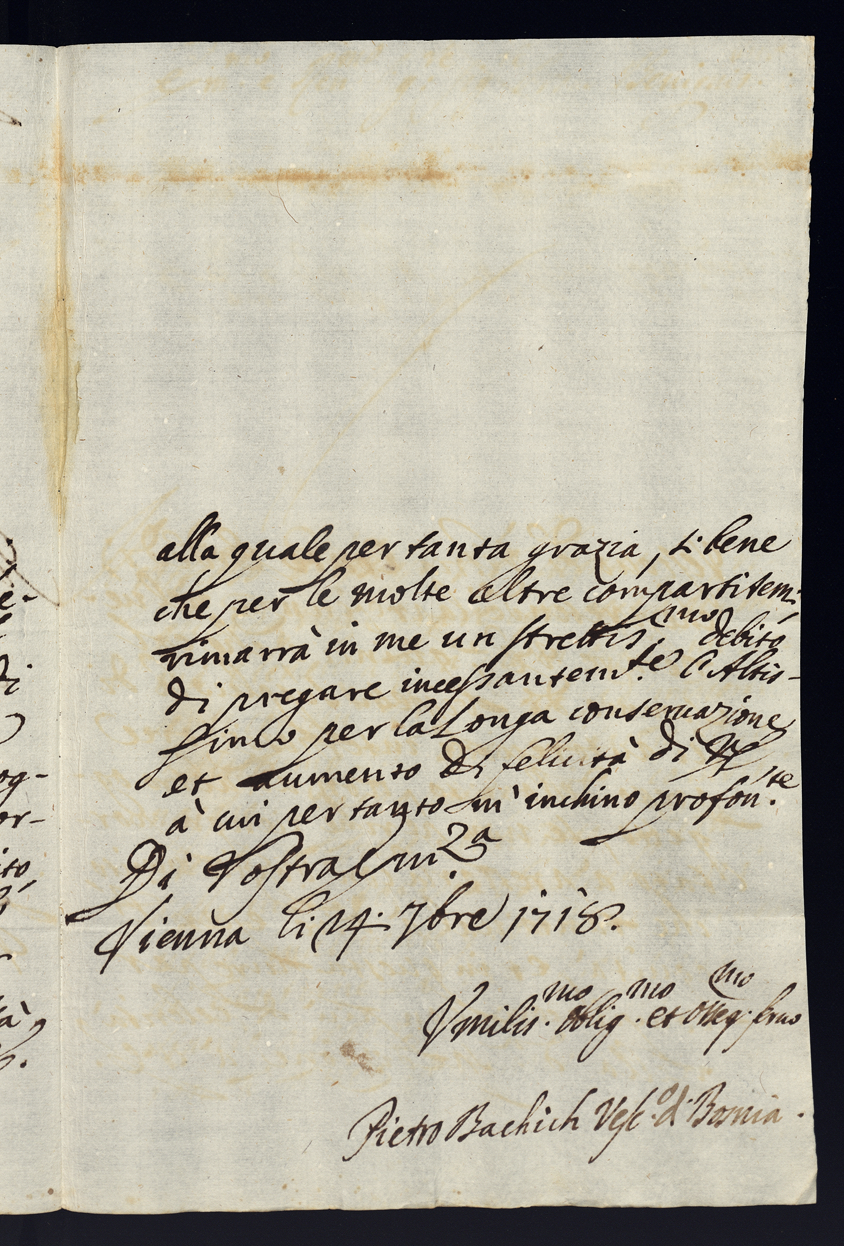 alla quale per tanta grazia, si bene
che per le molte altre compartitemi,
rimarrà in me un strettis.mo debito
di pregare incessantem.te l'Altis-
simo per la Longa conservazione
et aumento di felicità di VE
à cui per tanto m'inchino profon.te
Di Vostra Em.za
Vienna li 14. 7bre 1718.
Vmilis.mo oblig.mo et osseq.mo servo
Pietro Bachich Vesc.o d. Bosnia.